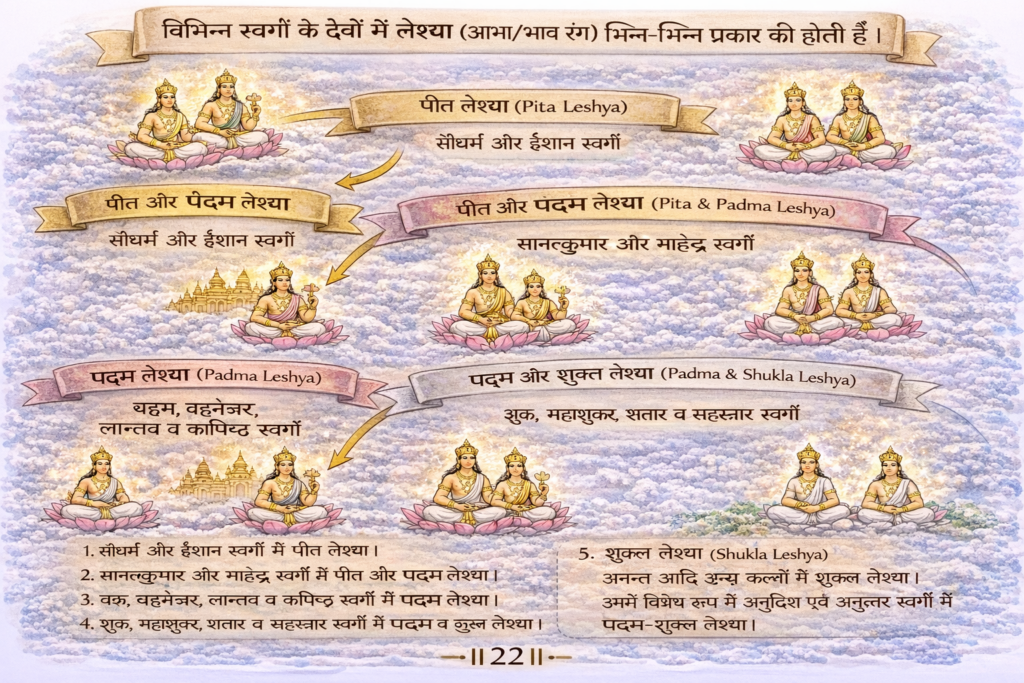 विभिन्न स्वर्गों के देवों में लेश्या (आभा/भाव रंग) भिन्न-भिन्न प्रकार की होती हैं।
पीत लेश्या (Pita Leshya)
सौधर्म और ईशान स्वर्गों
पीत और पंदम लेश्या
सौधर्म और ईशान स्वर्गों
पीत और पंदम लेश्या (Pita & Padma Leshya)
सानत्कुमार और माहेद्र स्वर्गों
पदम लेश्या (Padma Leshya)
लान्तव व कापिष्ठ स्वर्गों
पद्म और शुक्त लेश्या (Padma & Shukla Leshya)
शुक, महाशुकर, शतार व सहस्त्रार स्वर्गों
1. सौधर्म और ईशान स्वर्गों में पीत लेश्या।
2. सानत्कुमार और माहेद्र स्वर्गों में पीत और पदम लेश्या।
3. लान्तव व कपिष्ठ स्वर्गों में पदम लेश्या।
4. शुक, महाशुक्र, शतार व सहस्त्रार स्वर्गों में पदम व लेश्या।
5. शुक्ल लेश्या (Shukla Leshya)
अनन्त आदि में शुक्ल लेश्या।
में अनुदिश पूर्व अनुत्तर स्वर्गों में
पदम-शुक्ल लेश्या।
॥22॥